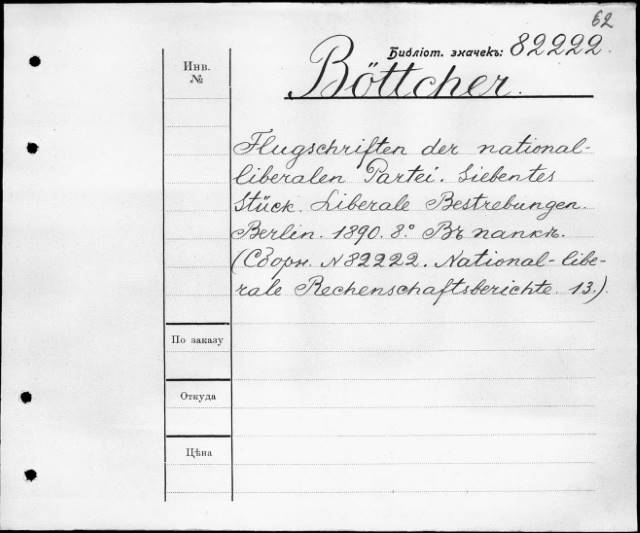 62
Библіот. значекъ: 82222.
Böttcher.
Инв.
№
Flugschriften der national-
liberalen Partei. Siebentes
Stück. Liberale Bestrebungen.
Berlin. 1890. 8.° Въ папкѣ.
(Сборн. N 82222. National-libe-
rale Rechenschaftsberichte. 13.)
По заказу
Откуда
Цѣна